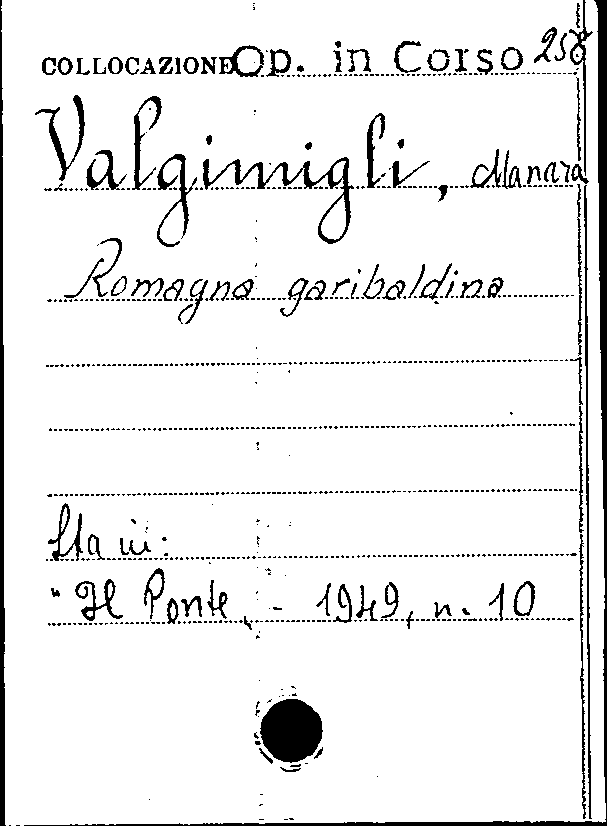 COLLOCAZIONE Op. in Corso 258
Valgimigli, Manara
Romagna garibaldina
Sta in:
"Il Ponte„ - 1949, n. 10